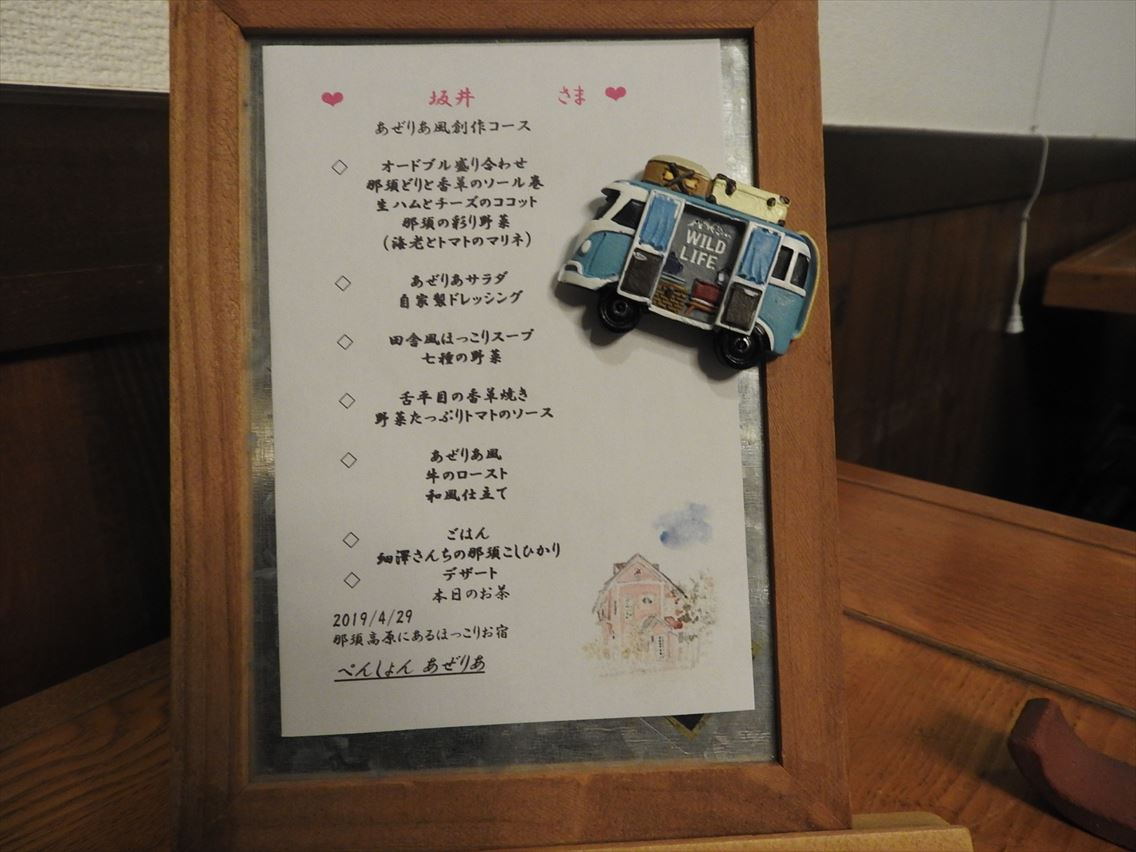 ❤ 坂井 さま ❤
あぜりあ風創作コース
◇ オードブル盛り合わせ
那須どりと香草のソール巻
生ハムとチーズのココット
那須の彩り野菜
(海老とトマトのマリネ)
◇ あぜりあサラダ
自家製ドレッシング
◇ 田舎風ほっこりスープ
七種の野菜
◇ 舌平目の香草焼き
野菜たっぷりトマトのソース
◇ あぜりあ風
牛のロースト
和風仕立て
◇ ごはん
細澤さんちの那須こしひかり
◇ デザート
本日のお茶
2019/4/29
那須高原にあるほっこりお宿
ぺんしょん あぜりあ
WILD
LIFE